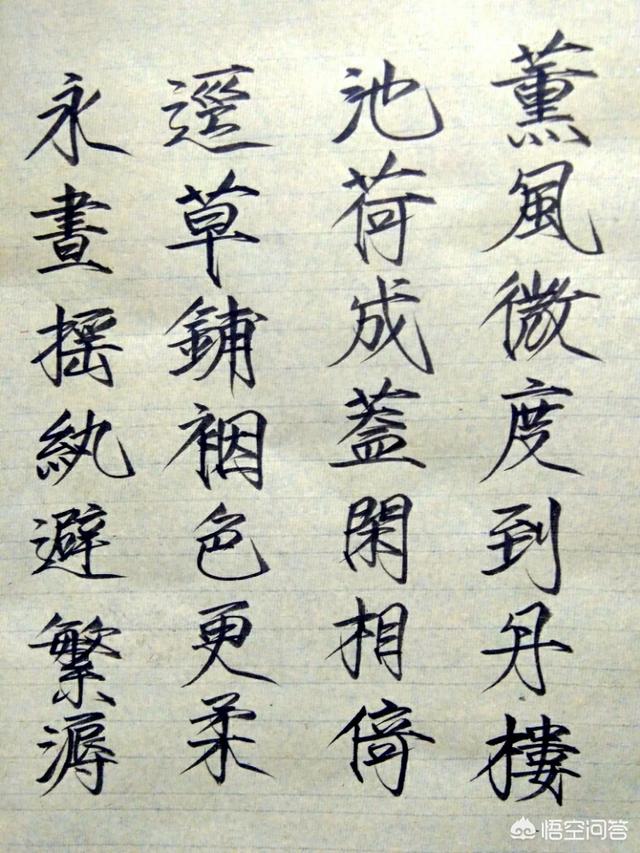 薰風微度到丹樓
池荷成蓋閑相倚
逕草鋪裀色更柔
永晝搖紈避繁溽
悟空问答